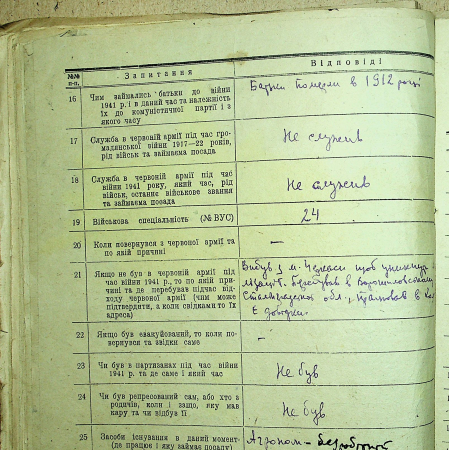 №№ п-п.
Запитання
Відповіді
16
Чим займались батьки до війни
1941 р. і в даний час та належність
їх до комуністичної партії і з
якого часу
Батьки померли в 1912 році
17
Служба в червоній армії під час гро-
мадянської війни 1917—22 років,
рід військ та займаєма посада
Не служив
18
Служба в червоній армії під час
війни 1941 року, який час, рід
військ, останнє військове звання
та займаєма посада
Не служив
19
Військова спеціальність (№ ВУС)
24
20
Коли повернувся з червоної армії та
по якій причині
—
21
Якщо не був в червоній армії під
час війни 1941 р., то по якій при-
чині та де перебував підчас від-
ходу червоної армії (чим може
підтвердити, а коли свідками то їх
адреса)
Вибув з м. Черкаси щоб уникнути
в Ворошиловському
Сталінградської обл., працював в
Є довідки.
22
Якщо був евакуйований, то коли по-
вернувся та звідки саме
–
23
Чи був в партизанах під час війни
1941 р. та де саме і який час
Не був
24
Чи був репресований сам, або хто з
родичів, коли і защо, яку мав
кару та чи відбув її
Не був
25
Засоби існування в даний момент
(де працює і яку займає посаду)
Агроном – безробітний